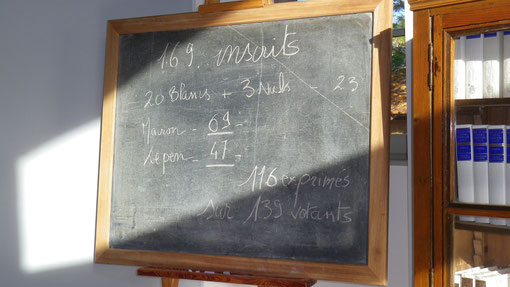 169. inscrits
20 Blancs + 3 Nuls - 23
Macron - 69 =
Le pen - 47 =
116 exprimes
sur 139 votants